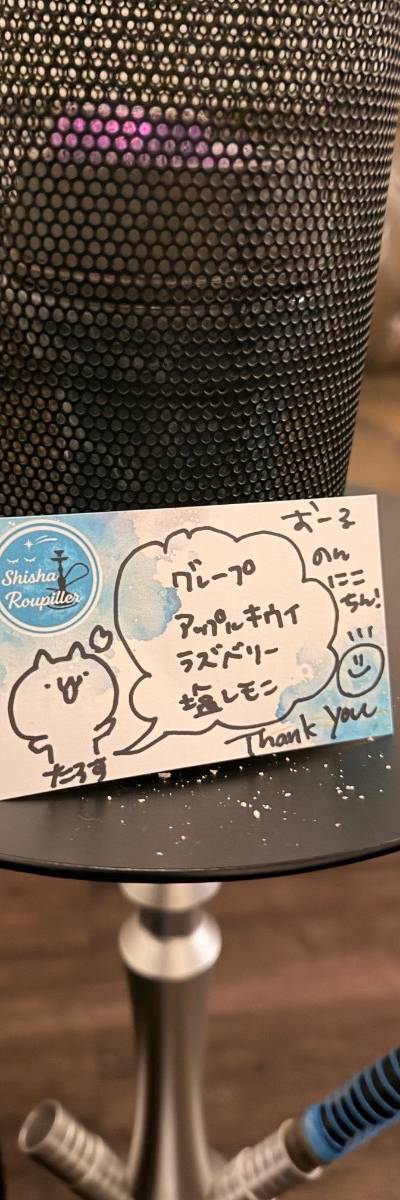 Shisha
Roupiller
グレープ
アップルキウイ
ラズベリー
塩レモン
おーる
のん
にこ
ちん!
Thank you
たろす